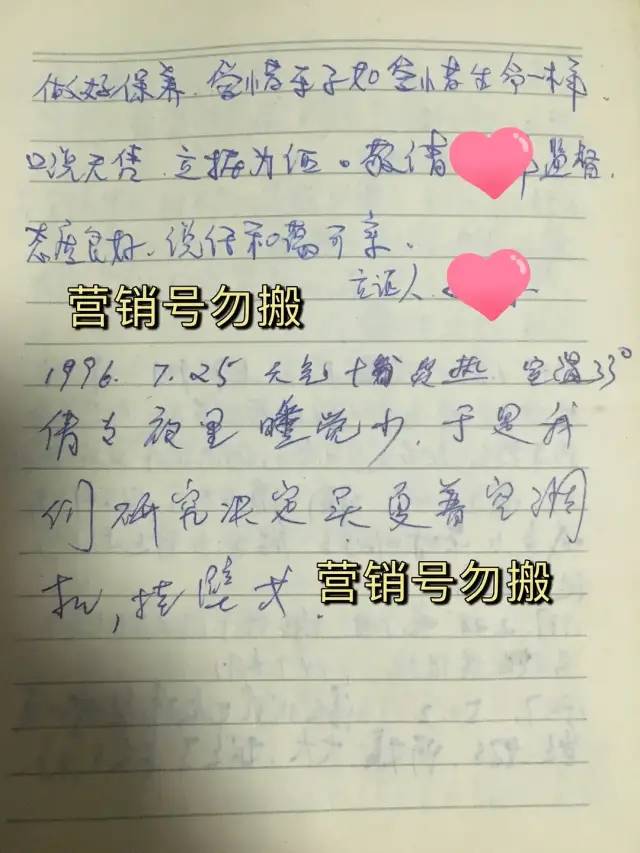 做好保养.爱惜车子如爱惜生命一样
口说无借.立据为证。敬倩 监督.
态度良好.说话和蔼可亲.
立证人.
营销号勿搬
1996. 7.25 天气十分炎热.室温33°
倩与夜里睡觉少.于是我
们研究决定买夏普空调
机,挂壁式.
营销号勿搬